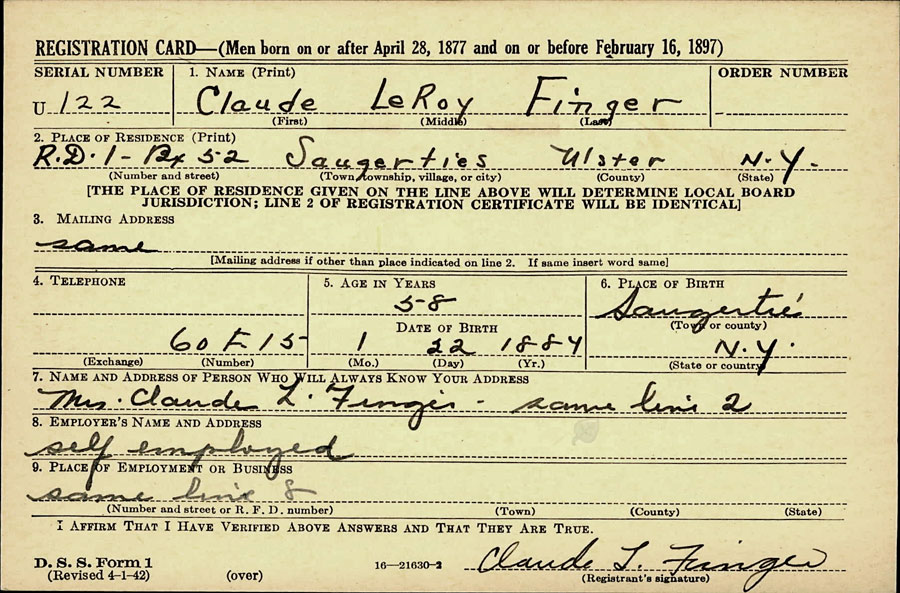 REGISTRATION CARD—(Men born on or after April 28, 1877 and on or before February 16, 1897)
SERIAL NUMBER 1. NAME (Print) ORDER NUMBER
U 122 Claude LeRoy Finger
(First) (Middle) (Last)
2. PLACE OF RESIDENCE (Print)
R.D. 1 - Bx 52 Saugerties Ulster N.Y.
(Number and street) (Town, township, village, or city) (County) (State)
[THE PLACE OF RESIDENCE GIVEN ON THE LINE ABOVE WILL DETERMINE LOCAL BOARD
JURISDICTION; LINE 2 OF REGISTRATION CERTIFICATE WILL BE IDENTICAL]
3. MAILING ADDRESS
same
[Mailing address if other than place indicated on line 2. If same insert word same]
4. TELEPHONE 5. AGE IN YEARS 6. PLACE OF BIRTH
58 Saugerties
DATE OF BIRTH (Town or county)
60 F 15 1 22 1884 N.Y.
(Exchange) (Number) (Mo.) (Day) (Yr.) (State or country)
7. NAME AND ADDRESS OF PERSON WHO WILL ALWAYS KNOW YOUR ADDRESS
Mrs. Claude L. Finger - same line 2
8. EMPLOYER'S NAME AND ADDRESS
self employed
9. PLACE OF EMPLOYMENT OR BUSINESS
same line 8
(Number and street or R. F. D. number) (Town) (County) (State)
I AFFIRM THAT I HAVE VERIFIED ABOVE ANSWERS AND THAT THEY ARE TRUE.
D. S. S. Form 1
(Revised 4-1-42) (over) 16—21630-2 Claude L. Finger
(Registrant's signature)